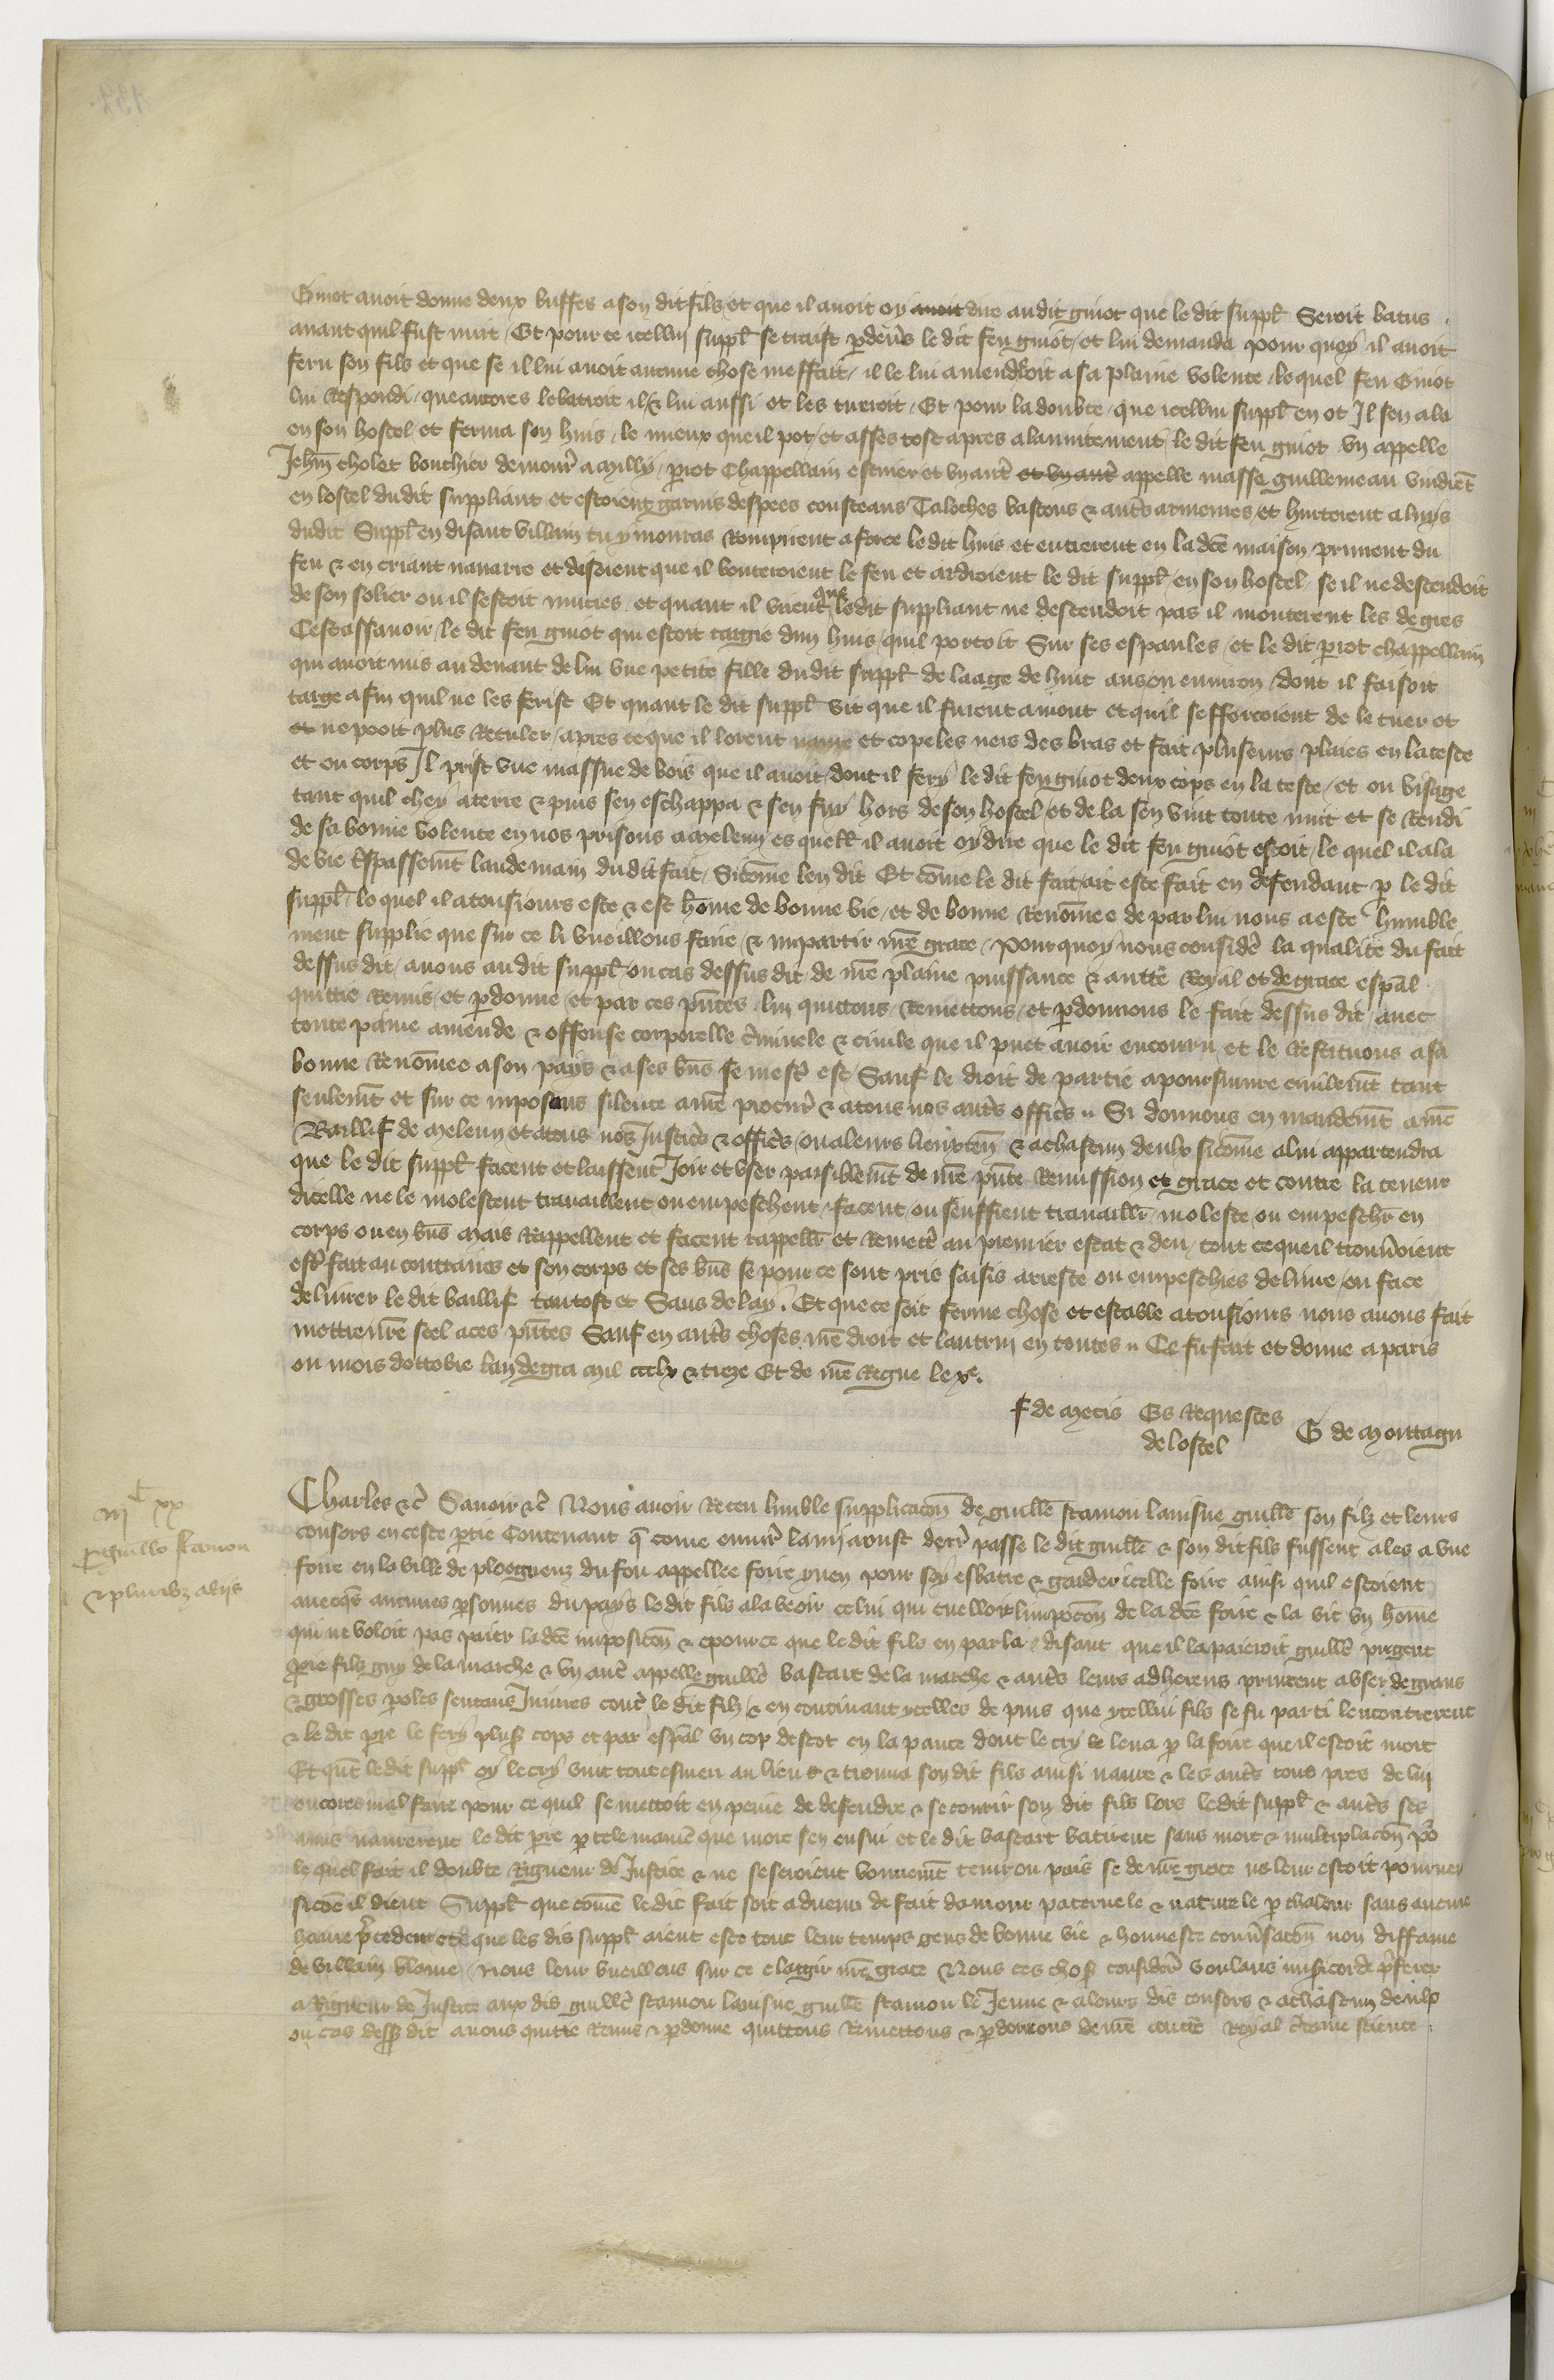 Guiot avoit donne deux buffes a son dit filz et que il avoit oy avoit dire au dit guiot que le dit suppl seroit batus
avant quil fust nuit / Et pour ce icellui suppl se traist p devs le dit feu guiot / et lui demanda pour quoy il avoit
feru son fils et que se il lui avoit aucune chose meffait / il le lui amenderoit a sa plaine volente / le quel feu Guiot
lui respondi / que ancores le batroit il & lui aussi et les tueroit / Et pour la doubte / que icellui suppl en ot Il sen ala
en son hostel et ferma son huis / le mieux que il pot / et asses tost apres alanuitement / le dit feu guiot un appelle
Jehan cholet bouchier demour a Milly / piot Chappellain escuier et un autre et un autre appelle masse guillemeau vindret
en lostel du dit suppliant et estoient garnis despees cousteaus Taloches bastons & autres armeures / et hurterent a luys
dudit Suppl en disant villain tu y mourras rompirent a force le dit huis et entrerent en la dce maison prinrent du
feu & en criant navarre et disoient que il bouteroient le feu et ardroient le dit suppl en son hostel se il ne descendoit
de son solier ou il sestoit muties / et quant il virent que le dit suppliant ne descendoit pas il monterent les degres
Cest assavoir / le dit feu guiot qui estoit targie dun huis quil portoit sur ses espaules / et le dit piot chappellain
qui avoit mis au devant de lui une petite fille du dit suppl de laage de huit ans ou environ / dont il faisoit
targe afin quil ne les ferist Et quant le dit suppl vit que il furent amont et quil sefforcoient de le tuer et
et ne pooit plus reculer / apres ce que il lorent navre et cope les ners des bras et fait pluseurs plaies en la teste
et ou corps Il prist une massue de bois que il avoit / dont il fery le dit feu guiot deux cops en la teste / et ou visage
tant quil chey a terre & puis sen eschappa & sen fuy hors de son hostel et de la sen vint toute nuit et se rendi
de sa bonne volente en nos prisons a Meleun es quell il avoit oy dire que le dit feu guiot estoit / le quel il ala
de vie trespassement landemain du dit fait / Sicome len dit Et come le dit fait ait este fait en defendant p le dit
suppl / lo quel il a tousiours este & est home de bonne vie / et de bonne renomee de par lui nous a este humble
ment supplie que sur ce li vueillons faire / & impartir nre grace / Pour quoy nous consider la qualite du fait
dessus dit / avons au dit suppl / ou cas dessus dit de nre plaine puissance & auttē Royal et de grace espal
quittie remis / et pdonne / et par ces pntes lui quittons / remettons / et pdonnons le fait dessus dit / avec
toute paine amende & offense corporelle criminele & civile que il puet avoir encouru et le restituons a sa
bonne renomee a son pays & a ses bns se mest est / Sauf le droit de partie a poursuivre civilemt tant
seulemt et sur ce imposons silence a nre procur & a tous nos autres officrs Si donnons en mandemt a nre
Baillif de Meleun et a tous nos Justicrs & officrs / ou a leurs lieuxten & a chascun deulx sicome a lui appartendra
que le dit suppl facent et laissent Joir et user paisiblemt de nre pnte Remission et grace et contre la teneur
dicelle ne le molestent travaillent ou empeschent / facent / ou seuffrent travaillr moleste ou empeschr en
corps ou en bns Mais rappellent et facent rappellr et remettre au premier estat & deu / tout ce que il trouveroient
estre fait au contraires et son corps et ses bns se pour ce sont pris saisis arreste ou empeschies delivre / ou face
delivrer le dit baillif tantost et Sans delay. Et que ce soit ferme chose et estable a tousiours nous avons fait
mettre nre scel a ces pntes Sauf en autres choses nre droit et lautrui en toutes Ce fu fait et donne a paris
ou mois dottobre lan de gra Mil ccclx & treze Et de nre Regne le xe.
f de Metis Es Requestes de lostel G de Montagu
iiic xx
p guillo scanon
& pluribz aliis
Charles &c Savoir &c Nous avoir receu humble supplicacon de guille scamon lainsne guille son filz et leurs
consors en ceste ptie Contenant q come environ la my aoust derr passe le dit guille & son dit fils fussent ales a une
foire en la ville de ploeguenz du fou appellee foire yven pour soy esbatre & garder icelle foire ainsi quil estoient
avecqs aucunes psonnes du pays le dit fils ala veoir celui qui cuelloit limpocon de la dce foire & la vit un home
qui ne voloit pas paier la dce imposicon & pour ce que le dit fils en parla / disant que il la paieroit guille prigent
pre filz guy de la marche & un autre appelle guille bastart de la marche & autres leurs adherens prinrent a user de grans
& grosses poles sentans Iniures contre le dit filz & en continuant ycelles de puis que ycellui fils se fu parti lencontrerent
& le dit pre le fery plus cops et par espal un cop descot en la pance dont le cry se leva p la foire que il estoit mort
Et qut le dit suppl oy le cry vint tout esmeu au lieu & trouva son dit fils ainsi navre & les autres tous pres de lui
encores mal faire pour ce quil se mettoit en peine de defendre & secourir son dit fils lors le dit suppl & autres ses
amis navrerent le dit pre p tele maniere que mort sen ensui et le dit bastart batirent sans mort & mutilacon po
le quel fait il doubte rigueur de Justice & ne se seroient bonnemt tenir ou pais se de nre grace ne leur estoit pourveu
sicoe il dient Suppl que come le dit fait soit advenu de fait damour paternele & naturele p chaleur sans aucune
haine precedent et que les dis suppl aient este tout leur temps gens de bonne vie & honneste conversacon non diffame
de villain blame / nous leur vueillons sur ce elargir nre grace Nous ces chos considere voulans misicorde pferer
a Rigueur de Justice aux dis guille scamon lainsne guille scamon le Jeune & a leurs dis consors & a chascun deulx
ou cas dess dit avons quitte remis & pdonne quittons remettons & pdonnons de nre auctē Royal ctaine science